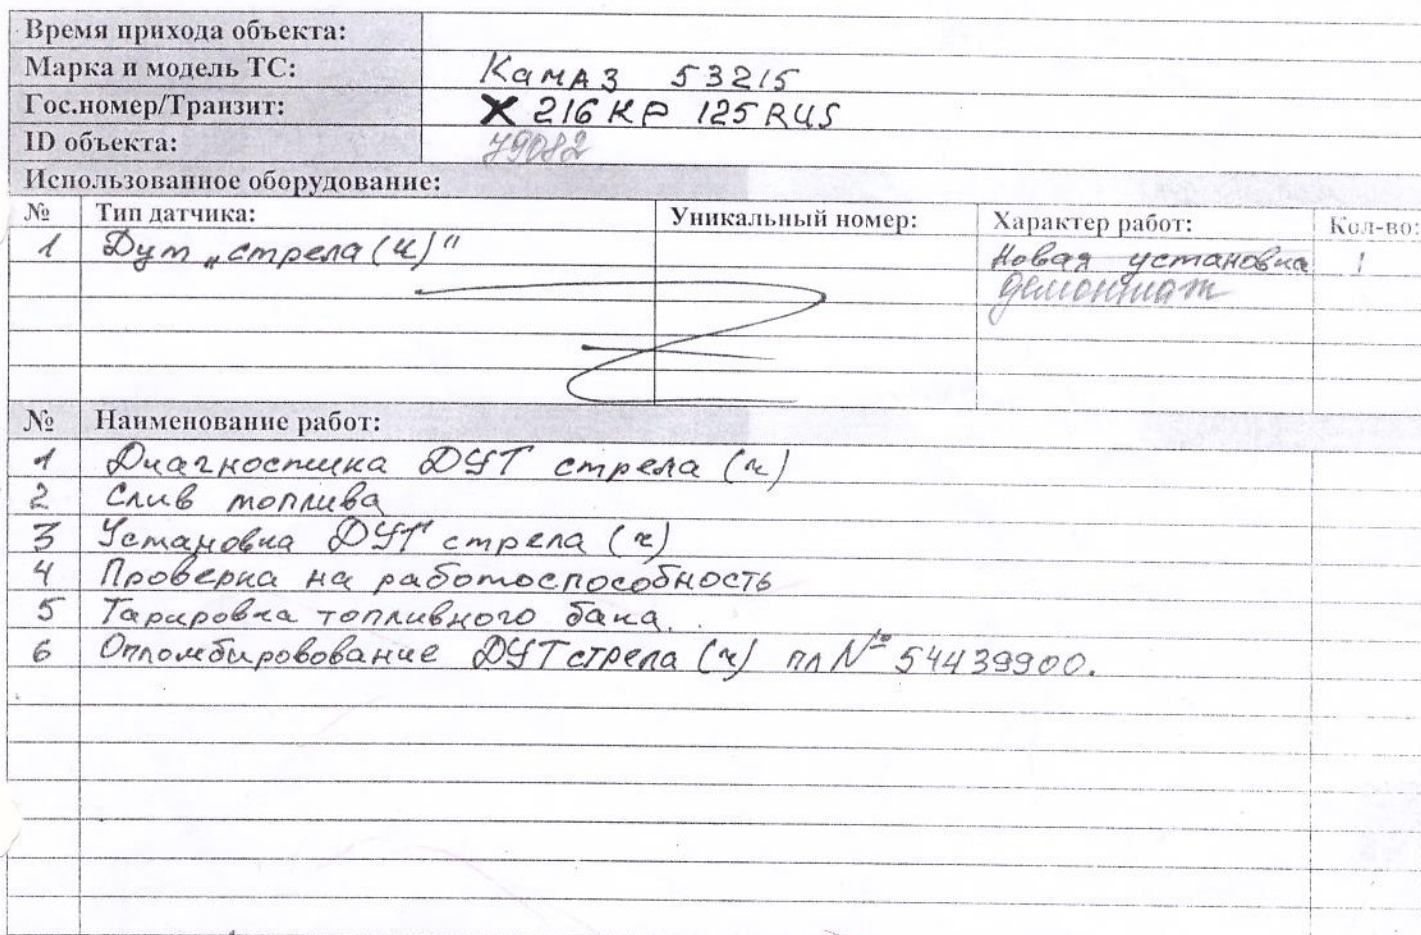 Время прихода объекта:
Марка и модель ТС: КамАЗ 53215
Гос.номер/Транзит: Х 216 КР 125 RUS
ID объекта: 79082
Использованное оборудование:
№ Тип датчика: Уникальный номер: Характер работ: Кол-во:
1 Дут „стрела(к)" Новая установка 1
демонтаж
№ Наименование работ:
1 Диагностика ДУТ стрела (к)
2 Слив топлива
3 Установка ДУТ стрела (к)
4 Проверка на работоспособность
5 Тарировка топливного бака.
6 Опломбировование ДУТ стрела (к) пл № 54439900.